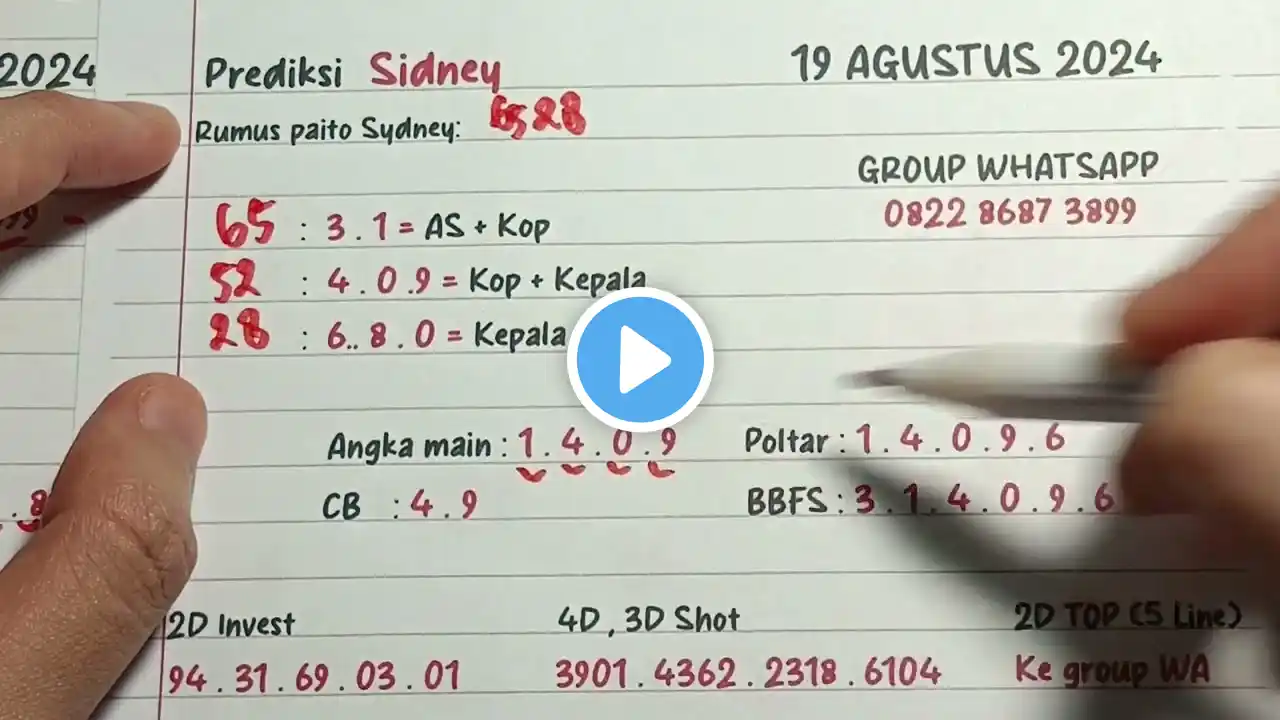 2024
Prediksi Sidney
19 AGUSTUS 2024
Rumus paito Sydney: 6528
GROUP WHATSAPP
0822 8687 3899
65 : 3.1 = AS + Kop
52 : 4.0.9 = Kop + Kepala
28 : 6..8.0 = Kepala
Angka main : 1.4.0.9
Poltar : 1.4.0.9.6
CB : 4.9
BBFS : 3.1.4.0.9.6
.8
2D Invest
4D, 3D Shot
2D TOP (5 Line)
94.31.69.03.01
3901.4362.2318.6104
Ke group WA